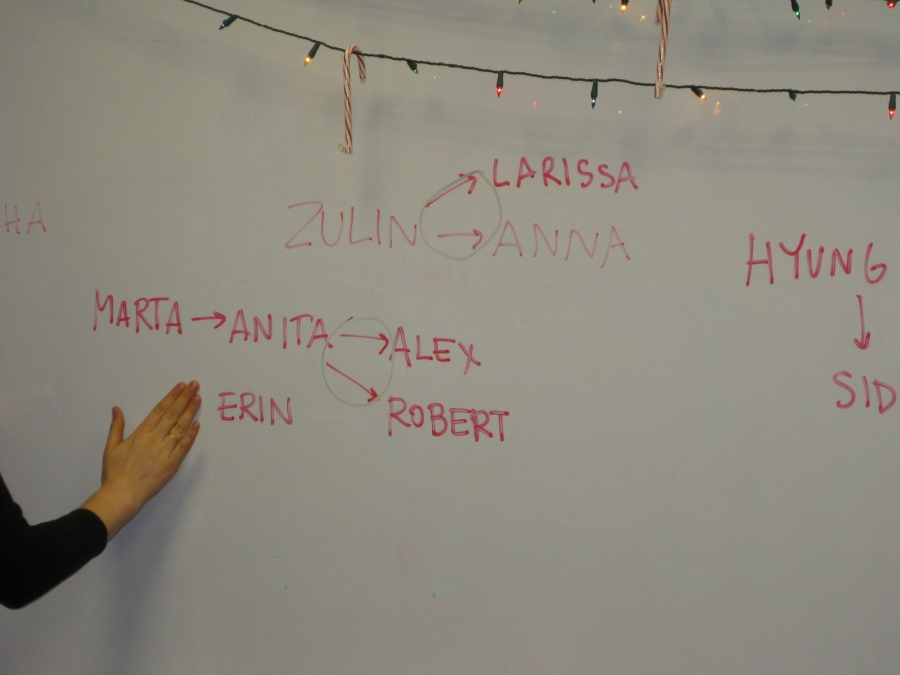 LARISSA
HA
ZULIN → ANNA
HYUNG
MARTA → ANITA → ALEX
↓
SID
ERIN
ROBERT